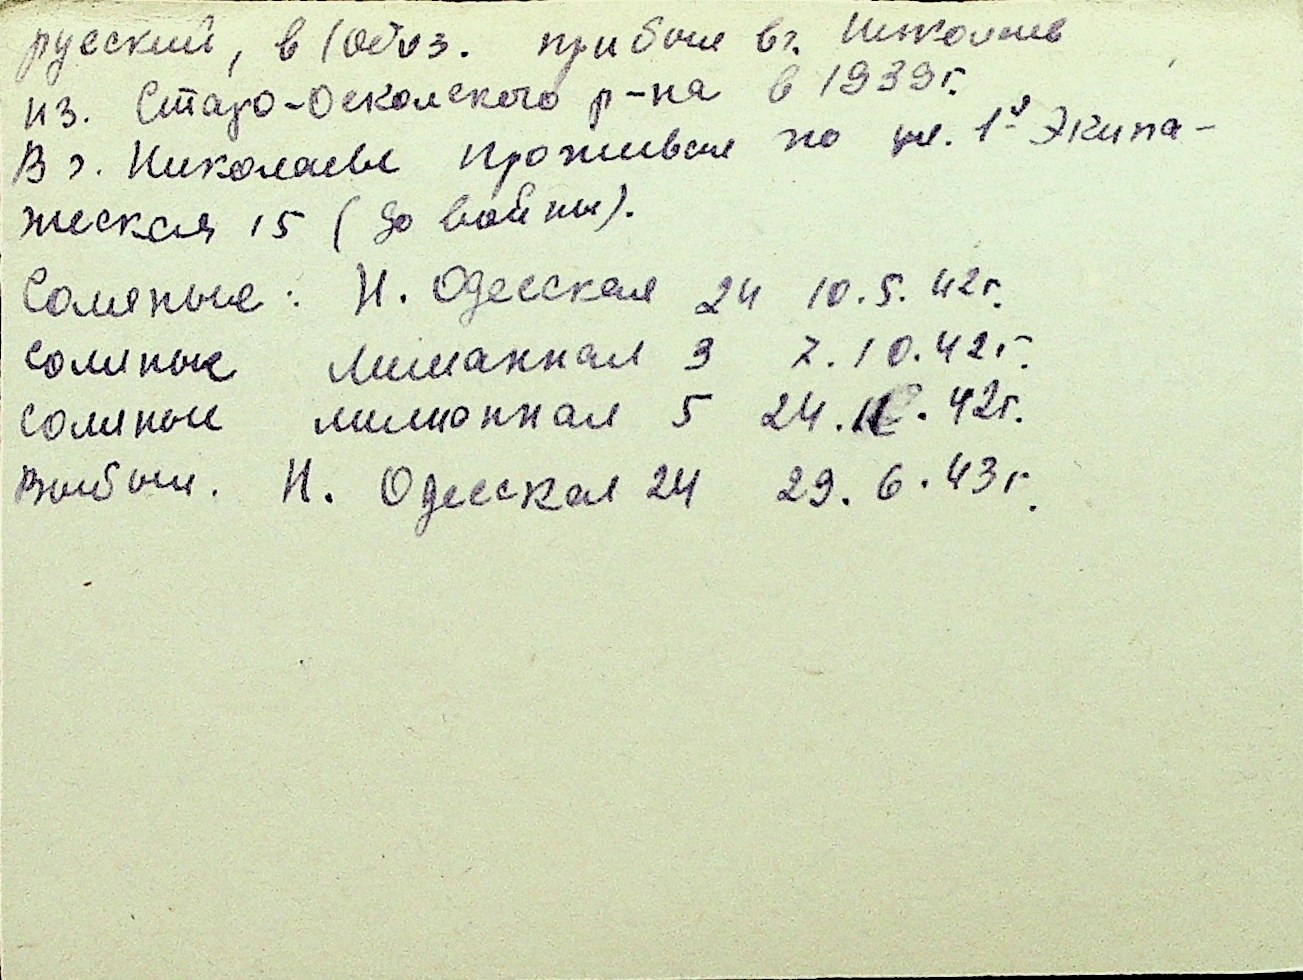 русский, в/обяз. прибыл в г. Николаев
из. Старо-Оскольского р-на в 1939г.
В г. Николаеве проживал по ул. 1я Экипа-
жеская 15 (до войны).
Соляные: Н. Одесская 24 10.5.42г.
Соляные Лиманная 3 7.10.42г.
Соляные лиманная 5 24. .42г.
Выбыл. Н. Одесская 24 29.6.43г.